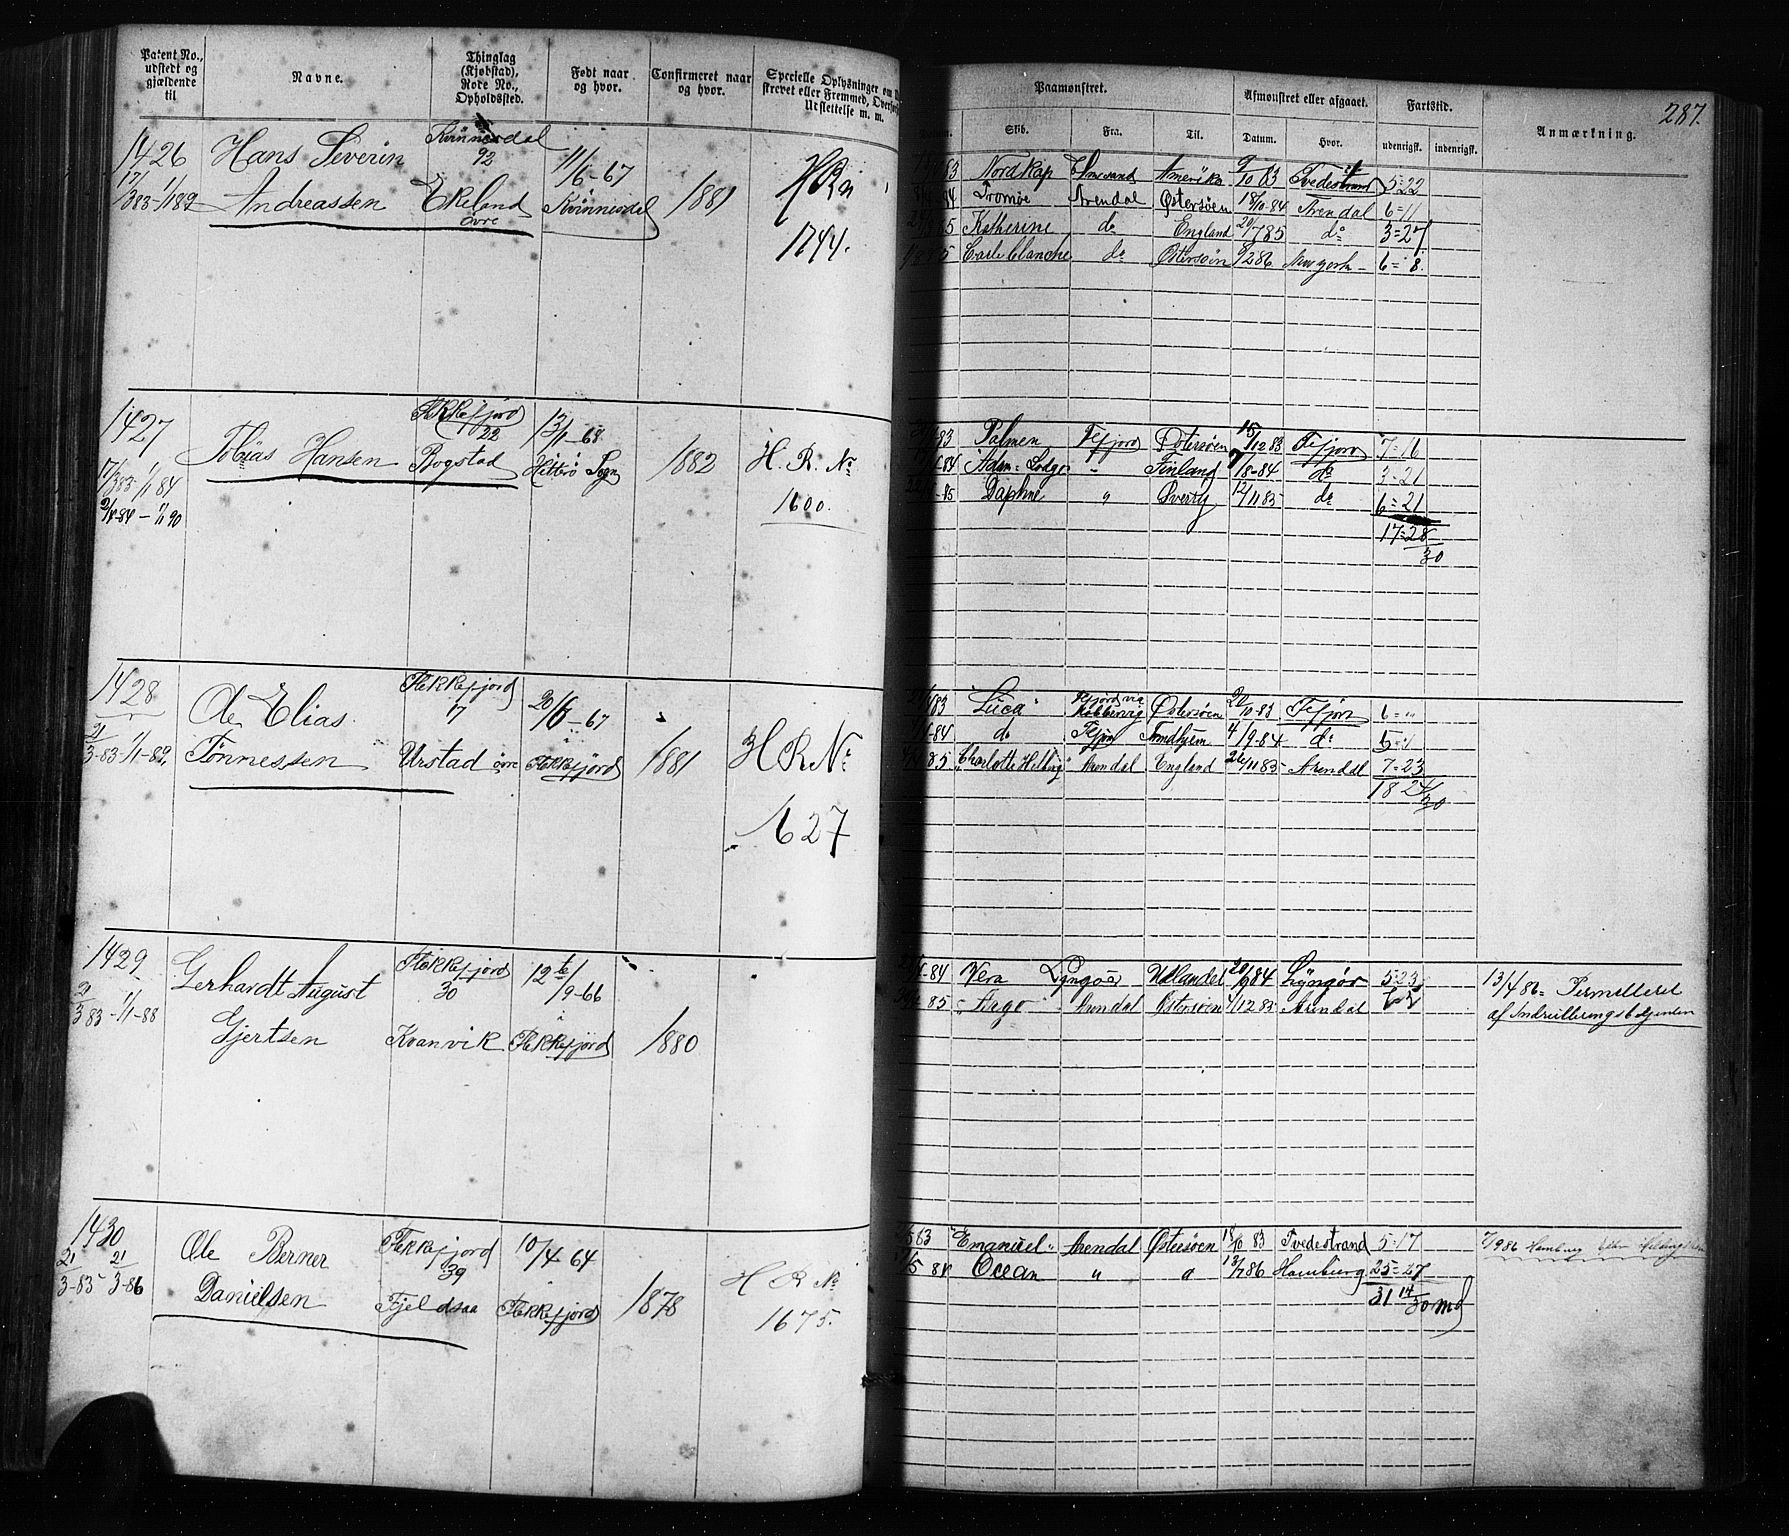 Patent No., udstedt og gjældende til
Navne.
Thinglag (Kjøbstad), Rode No., Opholdssted.
Født naar og hvor.
Confirmeret naar og hvor.
Specielle Oplysninger om
Udslettelse m. m.
Paamønstret.
Skib.
Fra.
Til.
Afmønstret eller afgaaet.
Datum.
Hvor.
Fartstid.
udenrigsk.
indenrigsk.
Anmærkning.
287.
1426
17/3 83 - 1/1 89
Hans Severin
Andreassen
Kvinnesdal
92
Ekeland
övre
11/6-67
Kvinnesdal
1881
H R N
1744.
Nordkap Amerika 9/10 83 Tvedestrand 5=22
Tromøe Arendal Østersøen 18/10-84 Arendal 6=11
Katherine do England 29/7 85 do 3=27
Carte blanche do Østersøen 9/2 86 New york 6=8.
1427
17/3 83-1/1 84
2/4-84-1/1 90
Tobias Hansen
Flekkefjord
22
Bogstad
13/1-68
Hitterö Sogn
1882
H. R. No
1600.
Palmen Fefjord Østersøen 15/10 83 Fefjord 7=16
Finland 7/8-84 do 3-21
Daphne " 12/11 85 do 6=21
17=28/30
1428
21/3-83-1/1-89,
Ole Elias
Tønnessen
Flekkefjord
17
Urstad övre
20/6-67
Flekkefjord
1881
H R No
1627
"Luca" Østersøen 22/10-83 Fefjord 6="
do Fefjord Trondhjem 4/9-84 do
"Charlotte Helbig" Arendal England 26/11 85 Arendal 7=23
18 24/30
1429
21/3 83-1/1-88
Gerhardt August
Gjertsen
Flekkefjord
30
Kvanvik
12te/9-66
Flekkefjord
1880
Vera Lyngøer Udlandet 20/9 84 Lyngør 5=23
"Argo" Arendal Østersøen 4/12 85 Arendal
13/4 86= Permitteret
af Indrulleringsbetjenten
1430
21/3-83- 21/3-86
Ole Berner
Danielsen
Flekkefjord
39
Fjeldsaa
10/4 64
Flekkefjord
1878
H R No
1675.
"Emanuel" Arendal Østersøen 18/10 83 Tvedestrand 5=17
Ocean " " 13/7 86 Hamburg 25=27
31 14/30 md
7/9 86 Hamburg